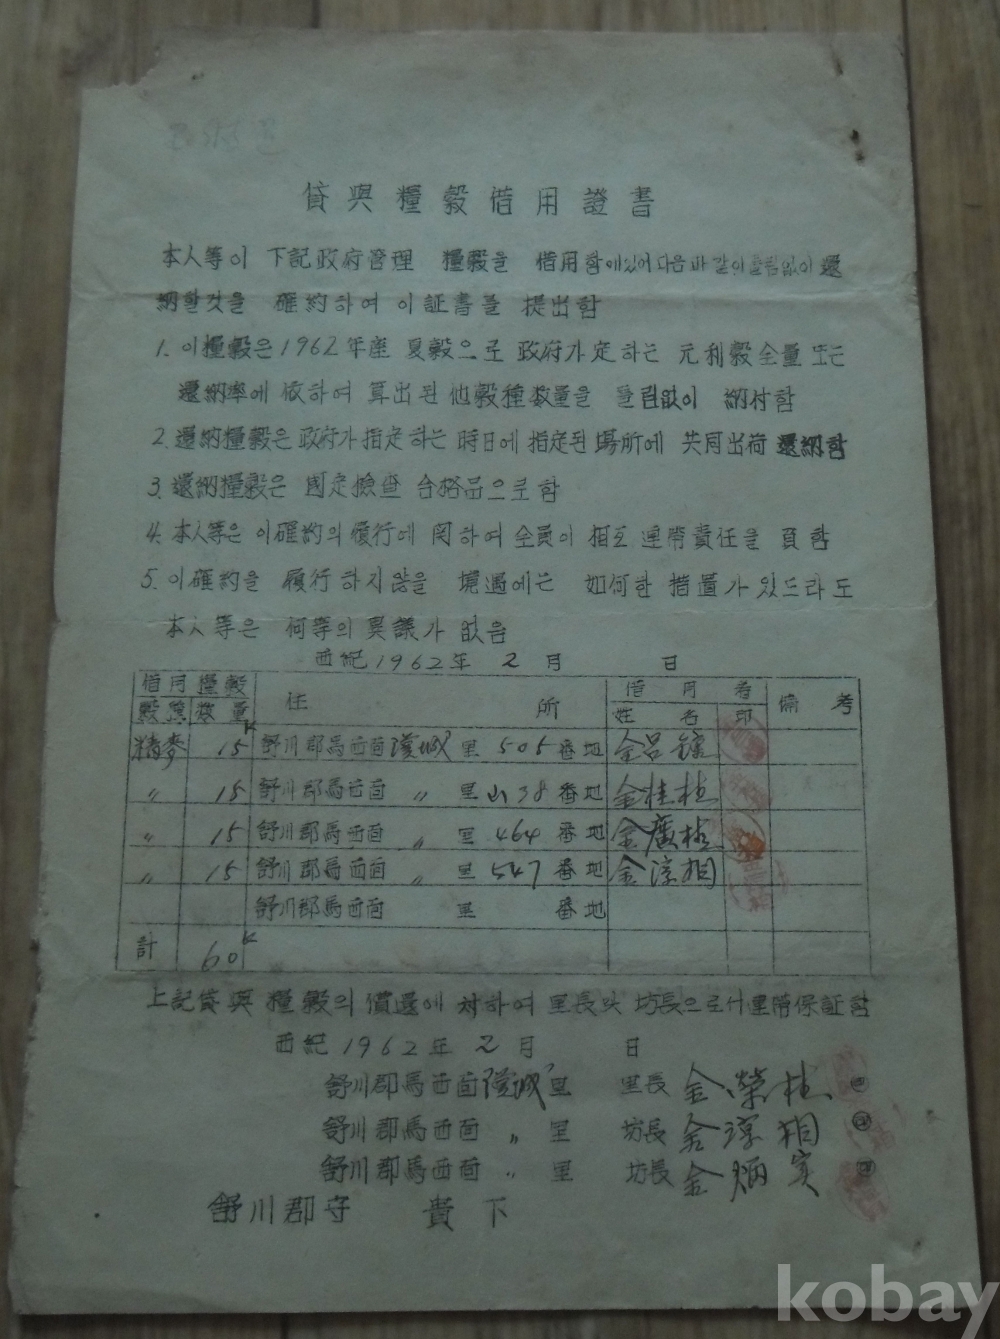 貸與糧穀借用證書
本人等이 下記政府管理 糧穀을 借用함에있어다음바같이틀림없이還
納할것을 確約하여 이証書를 提出함
1. 이糧穀은1962年産 夏穀으로 政府가定하는 元利穀全量 또는
還納率에 依하여 算出된他穀種数量을 틀림없이 納付함
2. 還納糧穀은政府가指定하는時日에指定된場所에 共同出荷還納함
3. 還納糧穀은 國定檢查 合格品으로함
4. 本人等은 이確約의履行에 関하여全員이 相互連帶責任을 負함
5. 이確約을 履行하지않을 境遇에는 如何한 措置가있드라도
本人等은 何等의異議가 없음
西紀1962年 2月 日
借用糧穀 住所 借用者 備考
穀種 数量 姓名 印
精麥 15K 舒川郡馬西面 里505番地 金呂鎬
〃 15 舒川郡馬西面 〃 里山38番地 金桂植
〃 15 舒川郡馬西面 〃 里464番地 金廣植
〃 15 舒川郡馬西面 〃 里547番地 金淳相
舒川郡馬西面 里 番地
計 60K
上記貸與 糧穀의 償還에 対하여 里長및 坊長으로서連帶保証함
西紀1962年 2月 日
舒川郡馬西面 里 里長 金榮植 印
舒川郡馬西面 〃 里 坊長 金淳相 印
舒川郡馬西面 〃 里 坊長 金炳实 印
舒川郡守 貴下
kobay